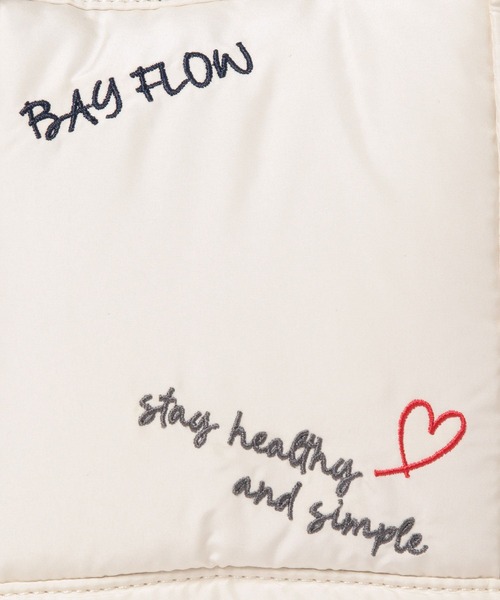 BAY FLOW
stay healthy
and simple